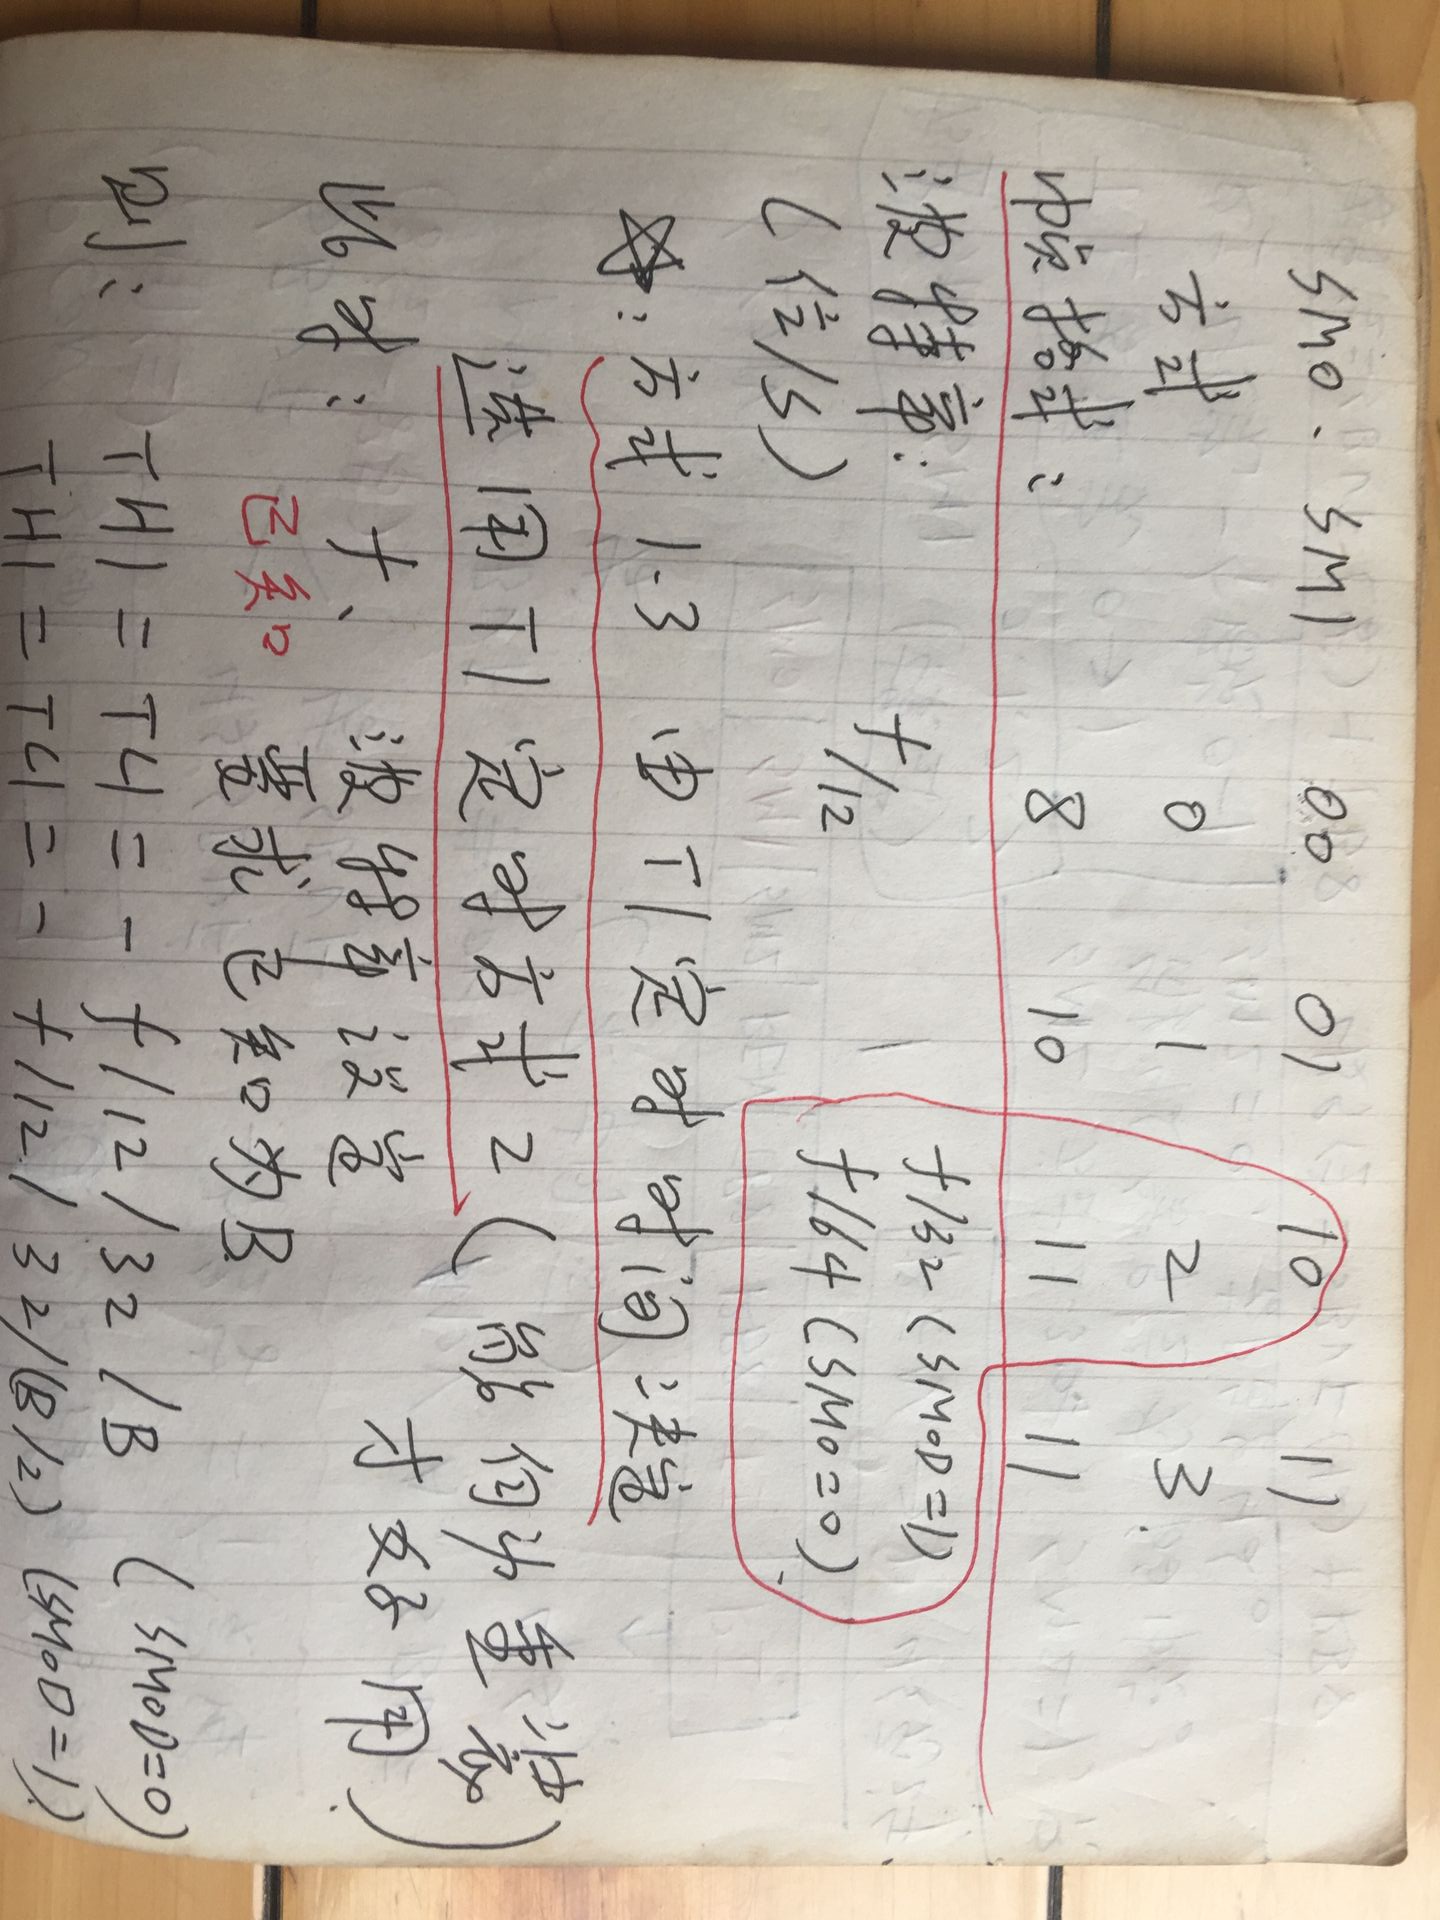 SM0. SM1 00 01 10 11
方式 0 1 2 3
帧格式: 8 10 11 11
波特率: f/12 1 f/32 (SMOD=1)
(位/S) f/64 (SMO=0)
☆: 方式 1.3 由 T1 定时时间决定
选用 T1 定时方式 2 (能自动重装
此时: f、波特率设定 才好用)
已知 要求已知为B
则: TH1 = T41 = - f/12/32/B (SMOD=0)
TH1 = T41 = - f/12/32/(B/2) (SMOD=1)